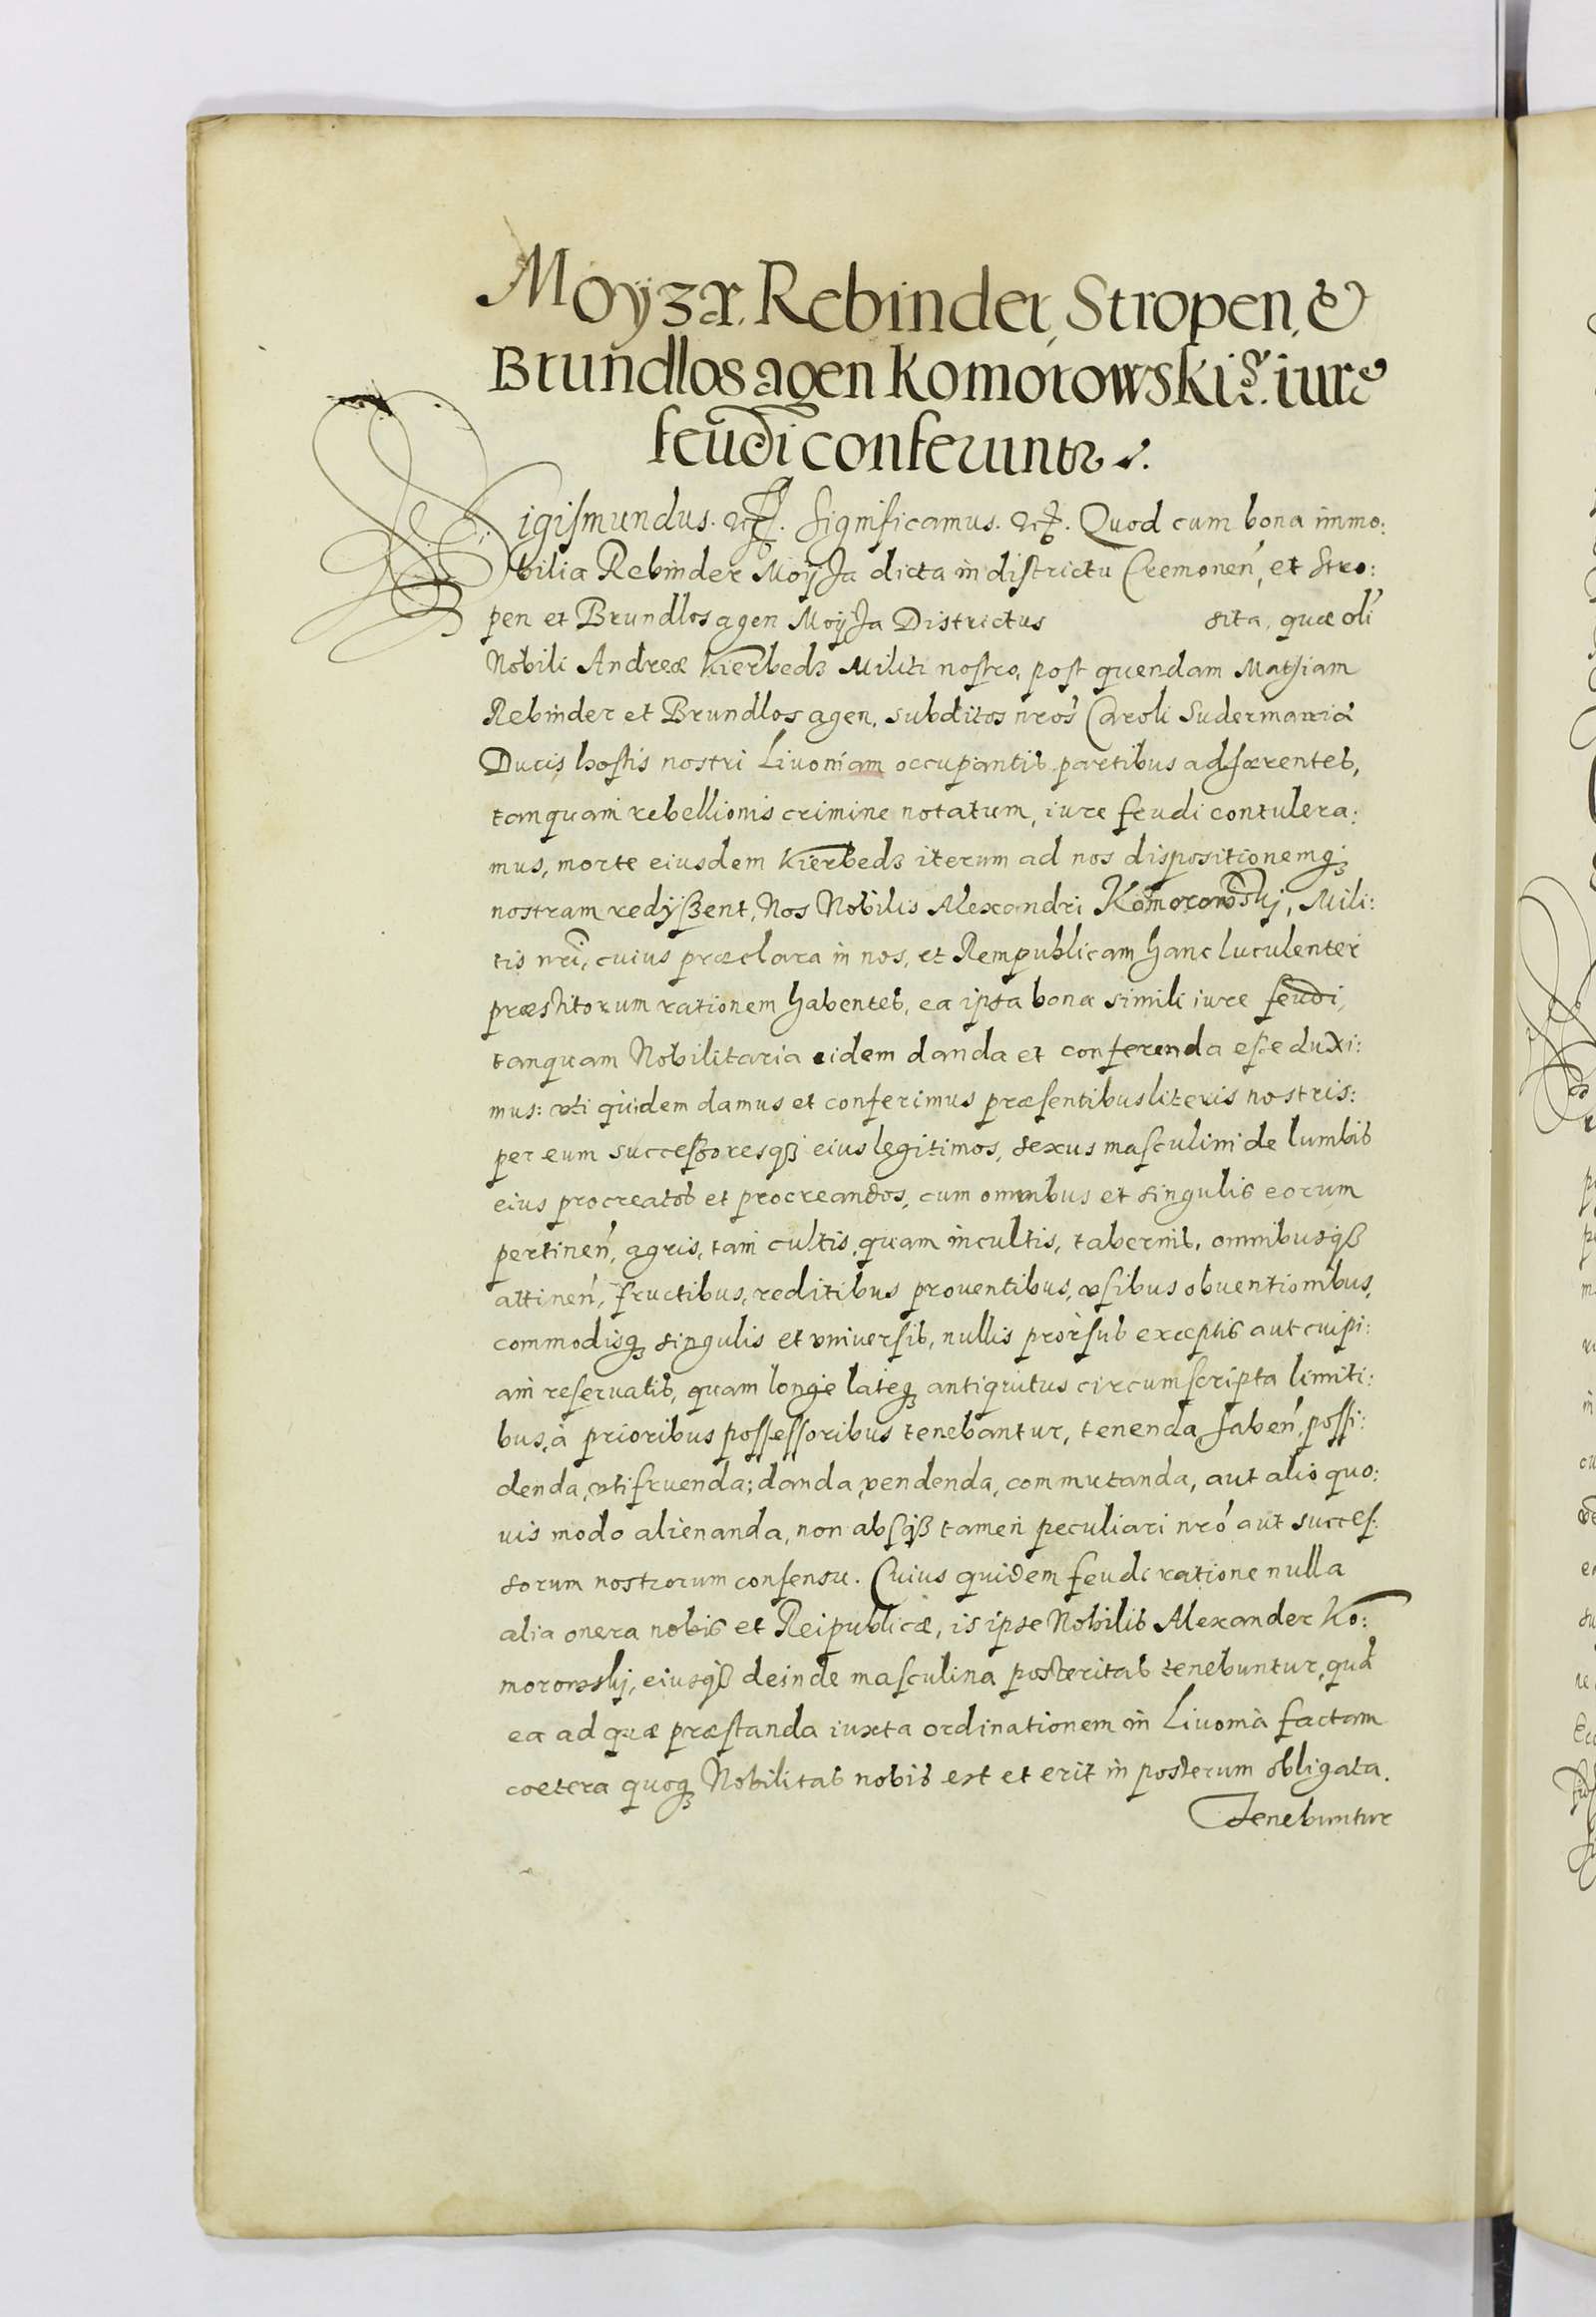 Moyzæ. Rebinder, Stropen, &
Brundlosagen Komorowski iure
feudi conferuntr.
Sigiſmundus. &c. Significamus. &c. Quod cum bona immo:
bilia Rebinder Moyſa dicta in diſtrictu Cremonen, et Stro:
pen et Brundlosagen Moyſa Districtus sita, quæ oli
Nobili Andreæ Kierbedz Militi noſtro, poſt quendam Mathiam
Rebinder et Brundlosagen, subditos nros Caroli Sudermaniæ
Ducis hoſtis nostri Liuoniam occupantis partibus adhærentes,
tanquam rebellionis crimine notatum, iure feudi contulera:
mus, morte eiusdem Kierbedz iterum ad nos dispositionemq;
nostram redyßent, Nos Nobilis Alexandri Komorowskj, Mili:
tis nri, cuius præclara in nos, et Rempublicam hanc luculenter
præstitorum rationem habentes, ea ipsa bona simili iure feudi,
tanquam Nobilitaria eidem danda et conferenda eſse duxi:
mus: vti quidem damus et conferimus præſentibus literis nostris:
per eum succeßoresq3 eius legitimos, sexus maſculini de lumbis
eius procreatos et procreandos, cum omnibus et singulis eorum
pertinen, agris, tam cultis, quam incultis, tabernis, omnibusq3
attinen, fructibus, reditibus prouentibus, vſibus obuentionibus,
commodisq; singulis et vniuerſis, nullis prorſus exceptis aut cuipi:
am reſeruatis, quam longe lateq; antiquitus circumſcripta limiti:
bus, à prioribus poſſeſſoribus tenebantur, tenenda haben, poſſi:
denda, vtifruenda; danda, vendenda, commutanda, aut alio quo:
uis modo alienanda, non abſq3 tamen peculiari nro aut succeſ:
sorum nostrorum conſensu. Cuius quidem feudi ratione nulla
alia onera nobis et Reipublicæ, is ipse Nobilis Alexander Ko:
morowskj, eiusq3 deinde maſculina posteritas tenebuntur, quà
ea ad quæ præſtanda iuxta ordinationem in Liuonia factam
coetera quoq; Nobilitas nobis est et erit in posterum obligata.
Tenebuntur